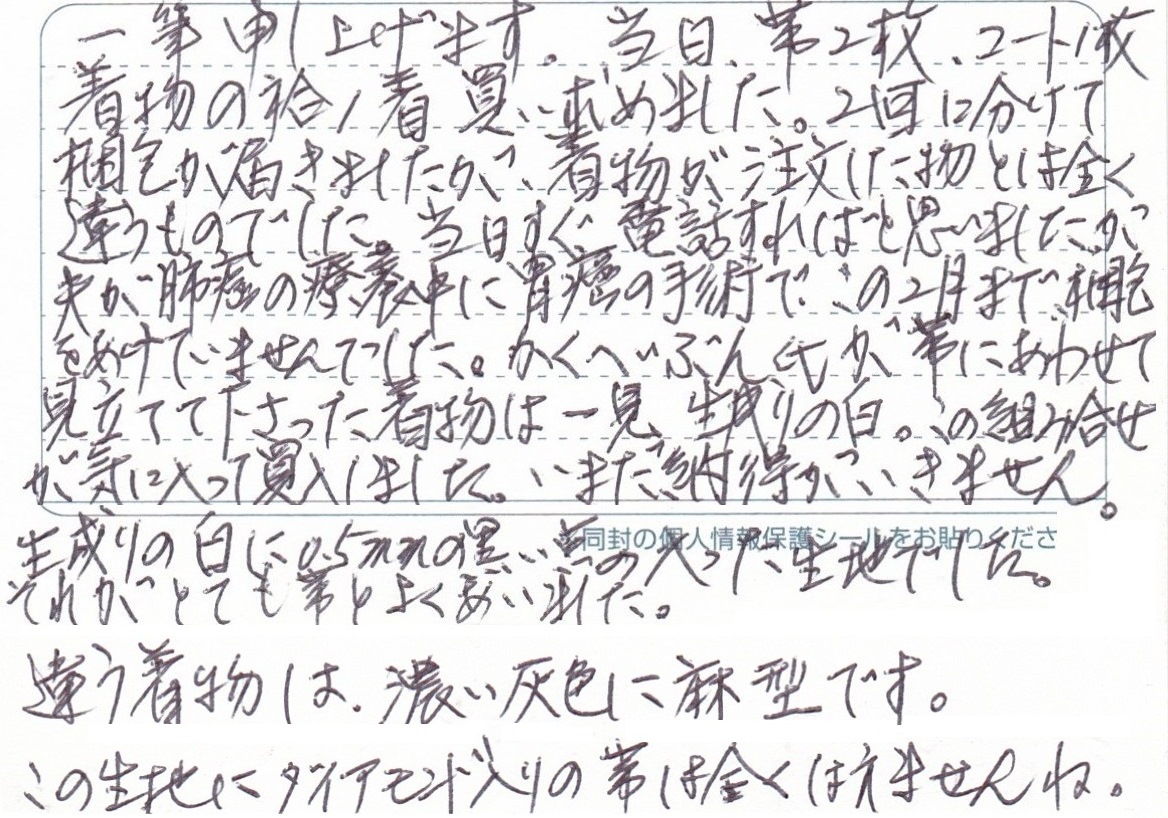 一筆申し上げます。当日、帯2枚、コート1枚
着物の袷1着買い求めました。2回に分けて
梱包が届きましたが、着物が注文した物とは全く
違うものでした。当日すぐ電話すればと思いましたが
夫が肺癌の療養中に胃癌の手術で、この2月まで、梱包
をあけていませんでした。かくへいぶんくもが帯にあわせて
見立てて下さった着物は一見、生成りの白。この組み合せ
が気に入って買入しました。いまだ納得がいきません。
同封の個人情報保護シールをお貼りくださ
生成りの白に0.5mmの黒い点の入った生地でした。
それがとても帯とよくあいました。
違う着物は、濃い灰色に麻型です。
この生地にダイアモンド入りの帯は全くはえませんね。